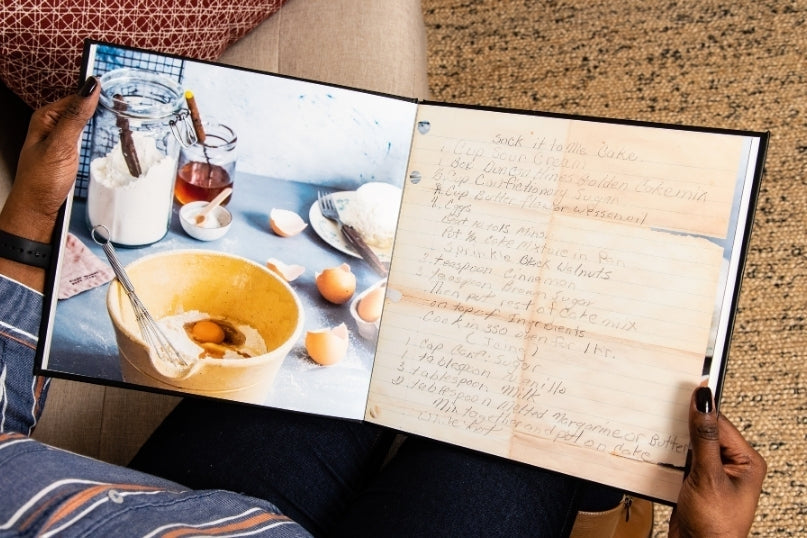 Sock it to Me Cake
1. Cup Sour Cream
1. Box Duncan Hines Golden Cake mix
Confectionary Sugar
Cup Butter Flavor Wesson oil
4. Eggs
Beat
Put ½ Cake Mixture in Pan
Sprinkle Black Walnuts
2 teaspoon Cinnamon
2 teaspoon Brown Sugar
then put rest of Cake mix
on top of Ingredients
Cook in 350 oven for 1 hr.
(Icing)
1. Cup Conf. Sugar
1. tablespoon Vanilla
3. tablespoon Milk
tablespoon Melted Margarine or Butter
Mix together and put on Cake
While Hot